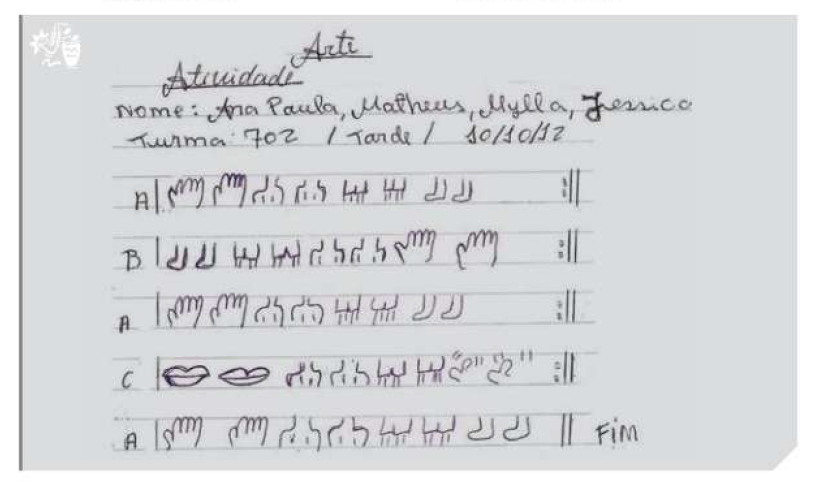 Arte
Atividade
Nome: Ana Paula, Matheus, Mylla, Jessica
Turma: 702 / Tarde / 10/10/12
A
B
A
C
A FIM